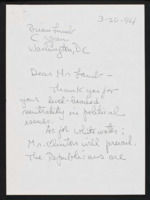 3-26-94
Brian Lamb
C-Span
Washington, DC
Dear Mr Lamb -
Thank you for
your level-headed
neutrality in political
issues.
As for White Water:
Mr. Clinton will prevail.
The Republicans are